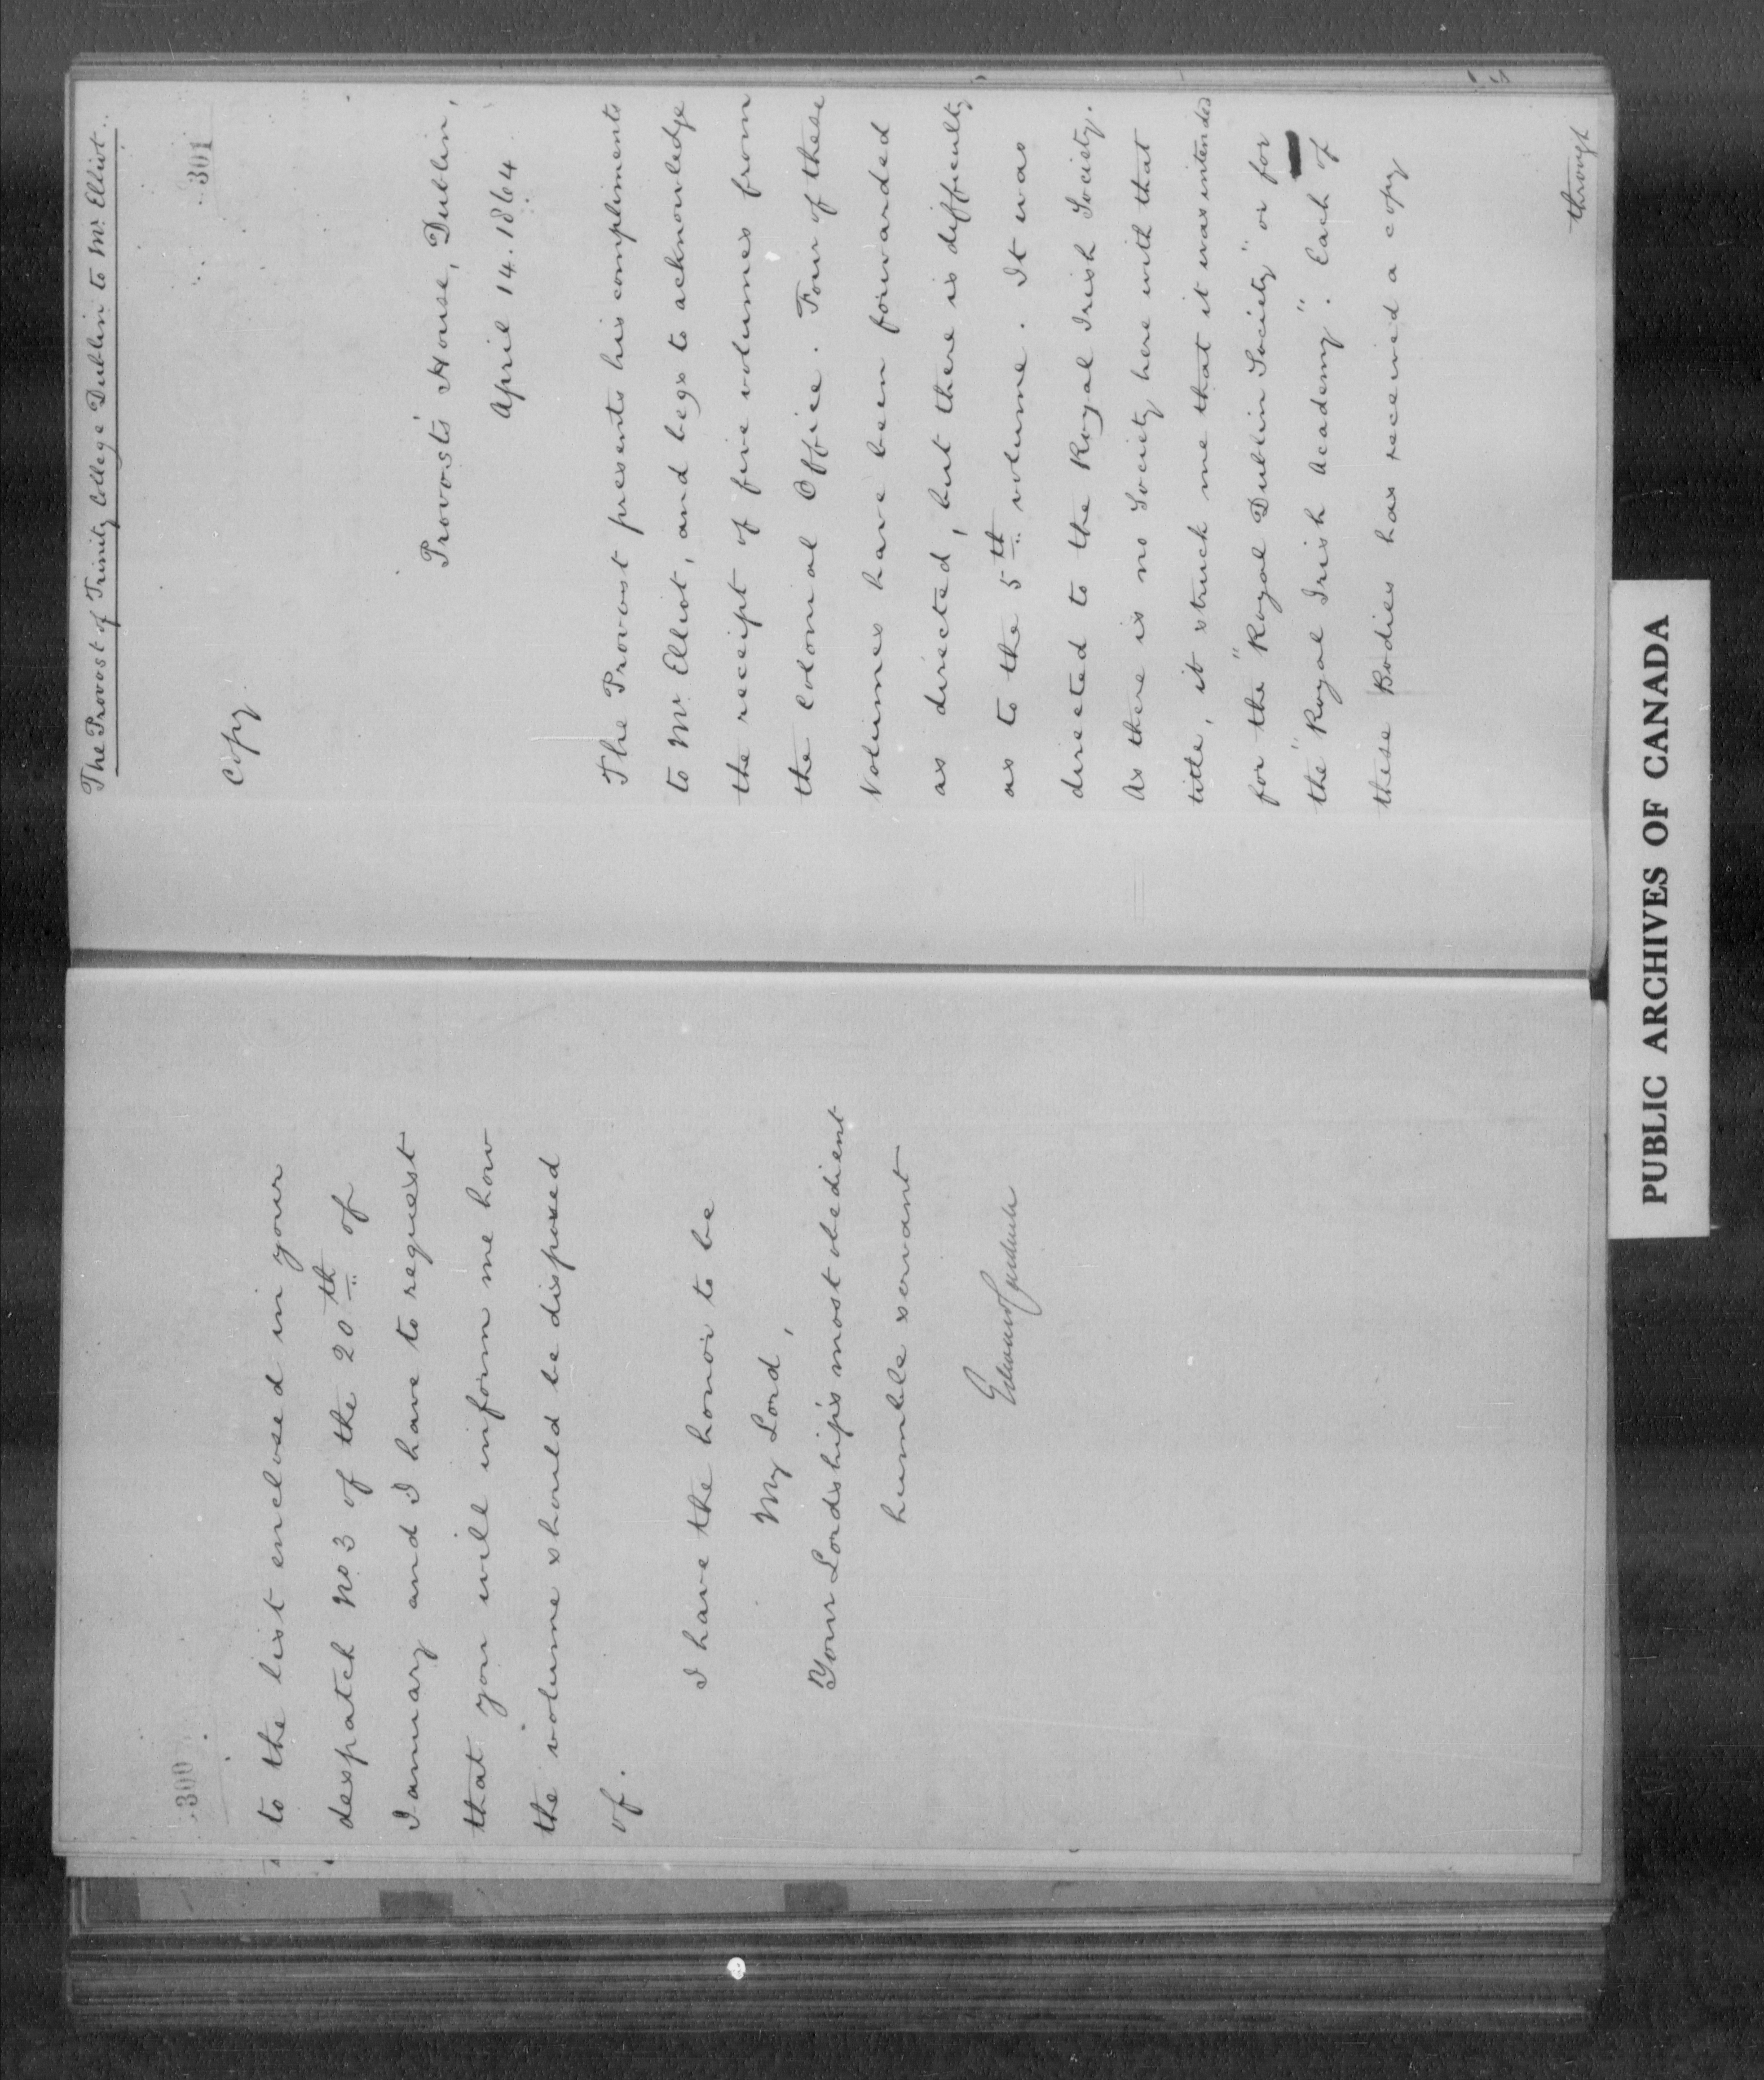 300
to the list enclosed in your
despatch No 3 of the 20th of
January and I have to request
that you will inform me how
the volume should be disposed
of.
I have the honor to be
My Lord,
Your Lordship's most obedient
humble servant
Edward Cardwell
The Provost of Trinity College Dublin to Mr. Elliot.
301
Copy
Provost's House, Dublin,
April 14. 1864
The Provost presents his compliments
to Mr. Elliot, and begs to acknowledge
the receipt of five volumes from
the Colonial Office. Four of these
Volumes have been forwarded
as directed, but there is difficulty
as to the 5th volume. It was
directed to the Royal Irish Society.
As there is no Society here with that
title, it struck me that it was intended
for the "Royal Dublin Society" or for
the "Royal Irish Academy". Each of
these Bodies has received a copy
through
PUBLIC ARCHIVES OF CANADA